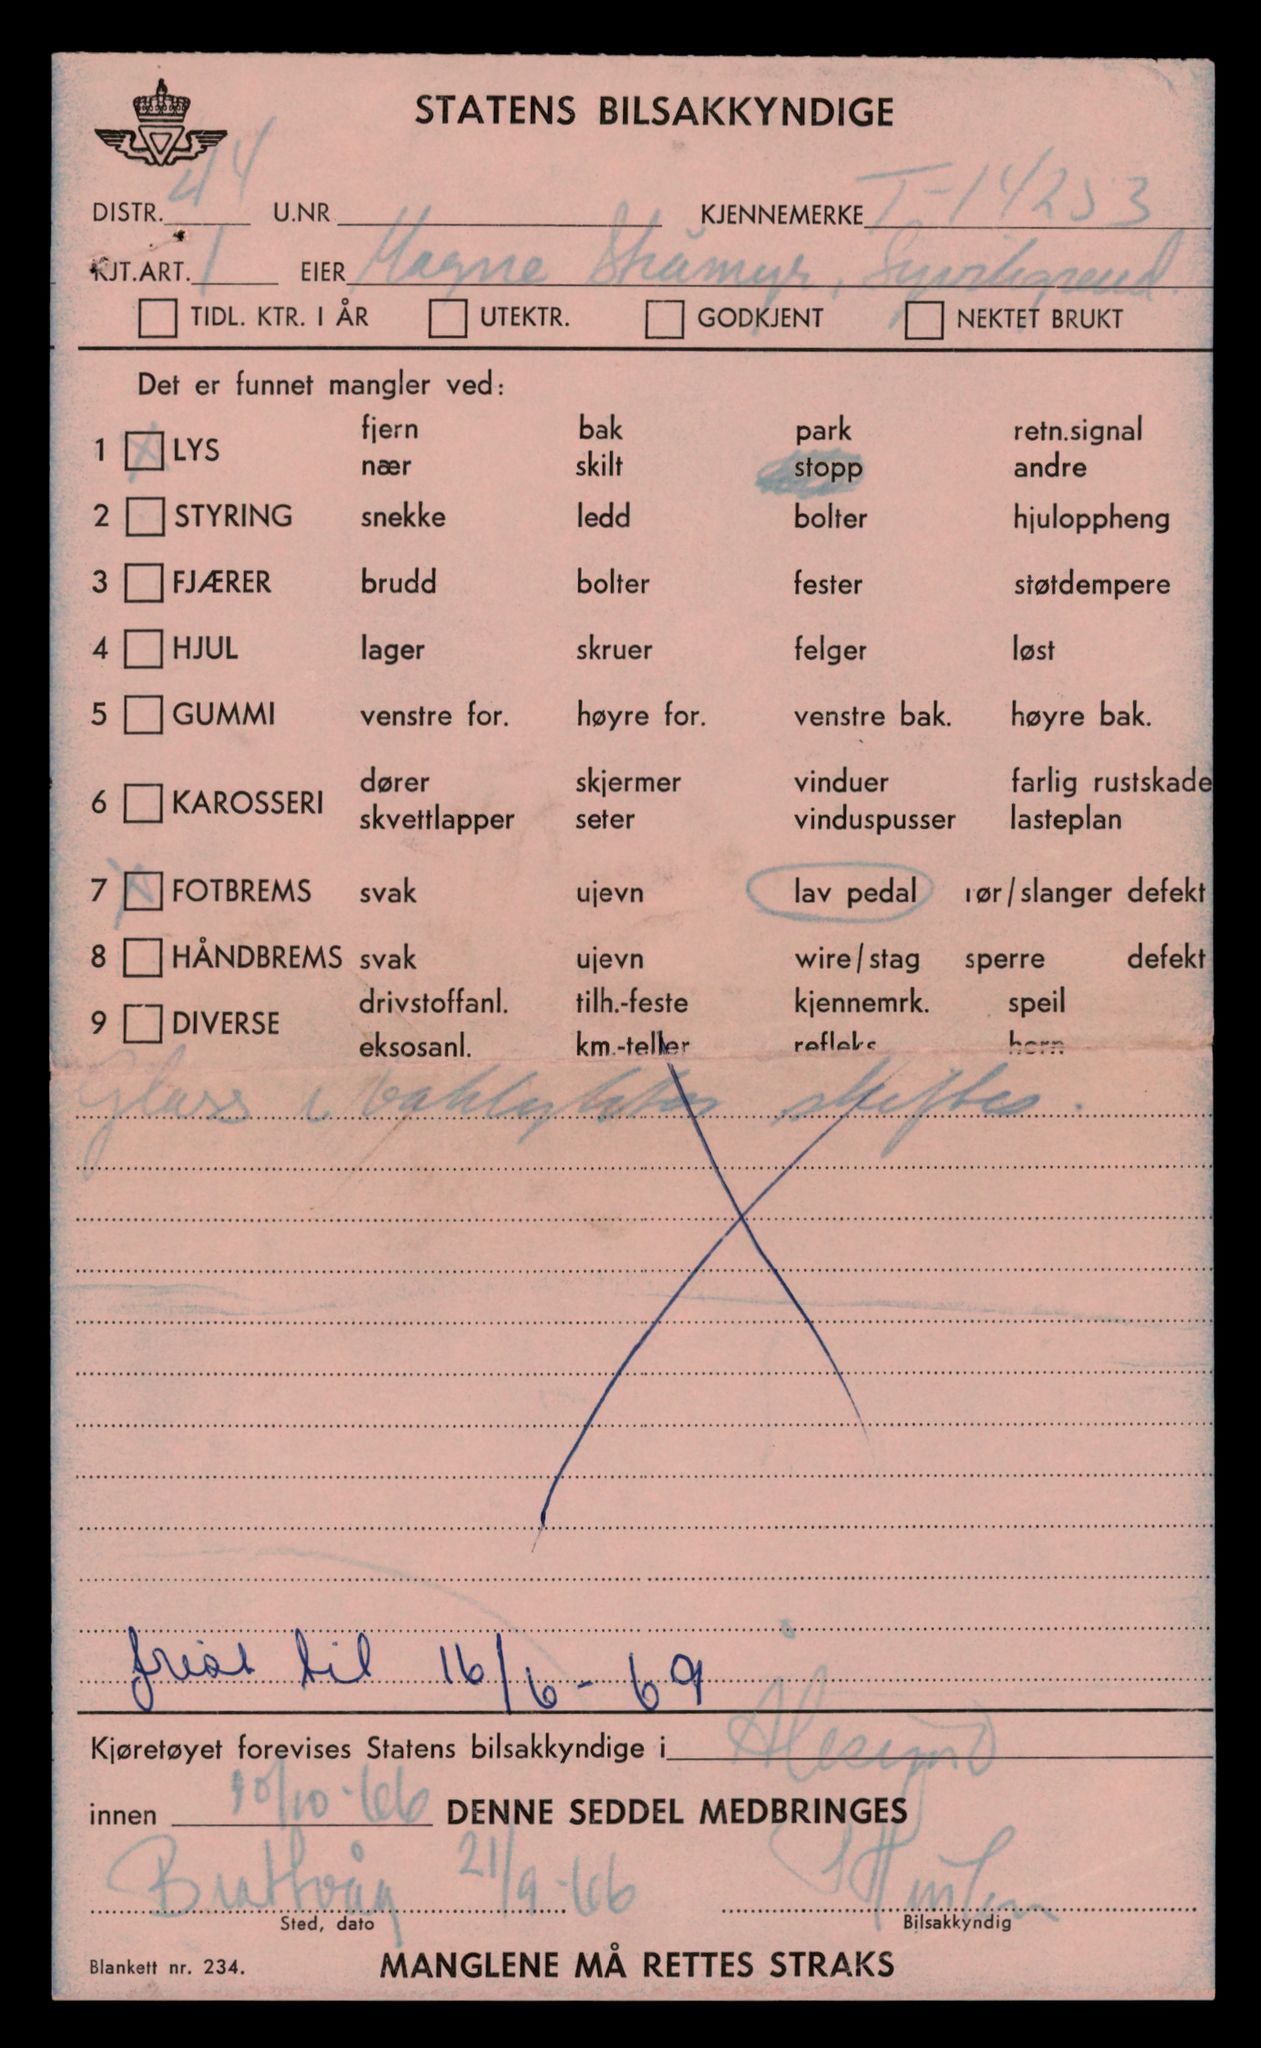 STATENS BILSAKKYNDIGE
DISTR. 44 U.NR KJENNEMERKE T-14253
KJT.ART. 1 EIER Magne
TIDL. KTR. I ÅR UTEKTR. GODKJENT NEKTET BRUKT
Det er funnet mangler ved:
1 X LYS fjern bak park retn.signal
nær skilt stopp andre
2 STYRING snekke ledd bolter hjuloppheng
3 FJÆRER brudd bolter fester støtdempere
4 HJUL lager skruer felger løst
5 GUMMI venstre for. høyre for. venstre bak. høyre bak.
6 KAROSSERI dører skjermer vinduer farlig rustskade
skvettlapper seter vinduspusser lasteplan
7 X FOTBREMS svak ujevn lav pedal rør/slanger defekt
8 HÅNDBREMS svak ujevn wire/stag sperre defekt
9 DIVERSE drivstoffanl. tilh.-feste kjennemrk. speil
eksosanl. km.-teller refleks horn
Glass i baklykter skiftes.
frist til 16/6-69
Kjøretøyet forevises Statens bilsakkyndige i Ålesund
innen 10/10-66 DENNE SEDDEL MEDBRINGES
Brattvåg 21/9-66
Sted, dato Bilsakkyndig
Blankett nr. 234. MANGLENE MÅ RETTES STRAKS